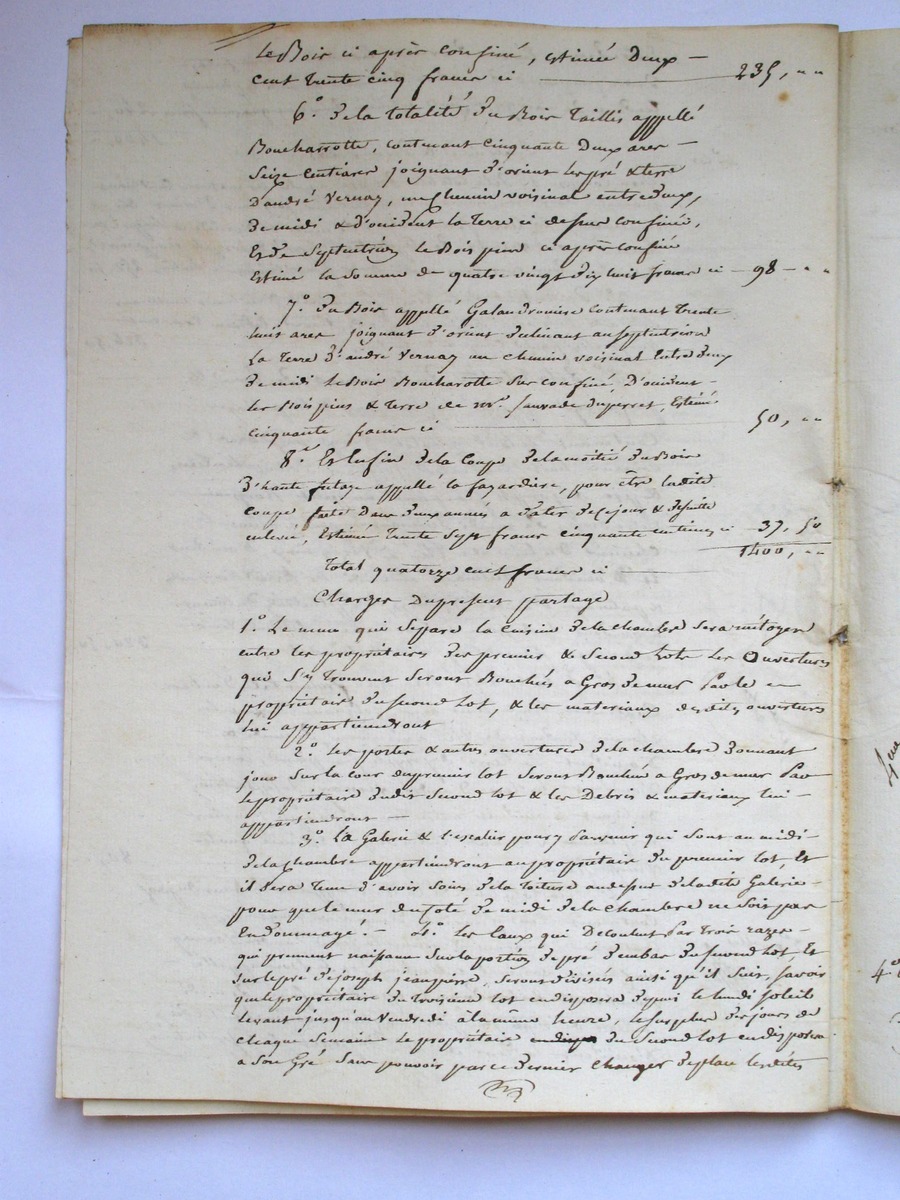 Le Bois ci après confiné, estimée Deux
cent trente cinq francs ci 235, " "
6.° De la totalité Du Bois Taillis appellé
Boucharrotte, contenant cinquante Deux ares
Seize centiares joignant D'orient les pré & terre
D'andré Vernay, un chemin voisinal entre Deux,
De midi & D'occident la Terre ci dessus confiné,
Et De Septentrion le Bois pins ci après confiné
Estimé la Somme de quatre vingt Dix huit francs ci 98 " "
7.° Du Bois appellé Galandronière contenant Trente
huit ares joignant D'orient Déclinant au septentrion
La Terre D'andré Vernay un chemin voisinal Entre Deux
De midi le Bois Boucharotte Sus confiné, D'occident
les Bois pins & Terre de Mr. Sauvade Duperret, Estimé
cinquante francs ci 50, " "
8.° Et Enfin De la Coupe De la moitié Du Bois
D'haute futaye appellé la fayardière, pour être ladite
coupe faite Dans Deux années à Dater De ce jour & De suite
enlevé, Estimée Trente Sept francs cinquante centimes ci 37, 50
1400, " "
Total quatorze cent francs ci
Charges Du present partage
1.° Le mur qui Séppare la cuisine De la chambre Sera mêtoyen
entre les propriétaires Des premier & Second Lots les Ouvertures
qui S'y Trouvent Seront Bouchées a Gros De mur Par le
propriétaire Du Second Lot, & les materiaux Desdites ouvertures
lui appartiendront
2.° Les portes & autres ouvertures De la chambre Donnant
jour Sur la cour Du premier lot Seront Bouchée a Gros de mur Par
le propriétaire Dudit Second lot & les Debris & materiaux lui
appartiendront
3.° La Galerie & l'escalier pour y Parvenir qui Sont au midi
De la chambre appartiendront au propriétaire Du premier lot, Et
il Sera Tenu D'avoir Soins De la Toiture au dessus De ladite Galerie
pour que le mur Du Coté De midi De la chambre ne Soit pas
Endommagé. 4.° Les Eaux qui Découlent Par Trois razes
qui prennent naissance Sur la portion De pré D'embas Du Second lot, Et
Sur le pré De joseph jeanpierre, Seront Divisées ainsi qu'il Suit, Savoir
que le propriétaire Du Troisième lot en disposera Depuis le lundi Soleil
levant jusqu'au Vendredi à la même heure, le surplus Des jours de
chaque Semaine le propriétaire Du Second lot en disposera
a Son Gré Sans pouvoir par ce Dernier changer De place lesdites
4.°